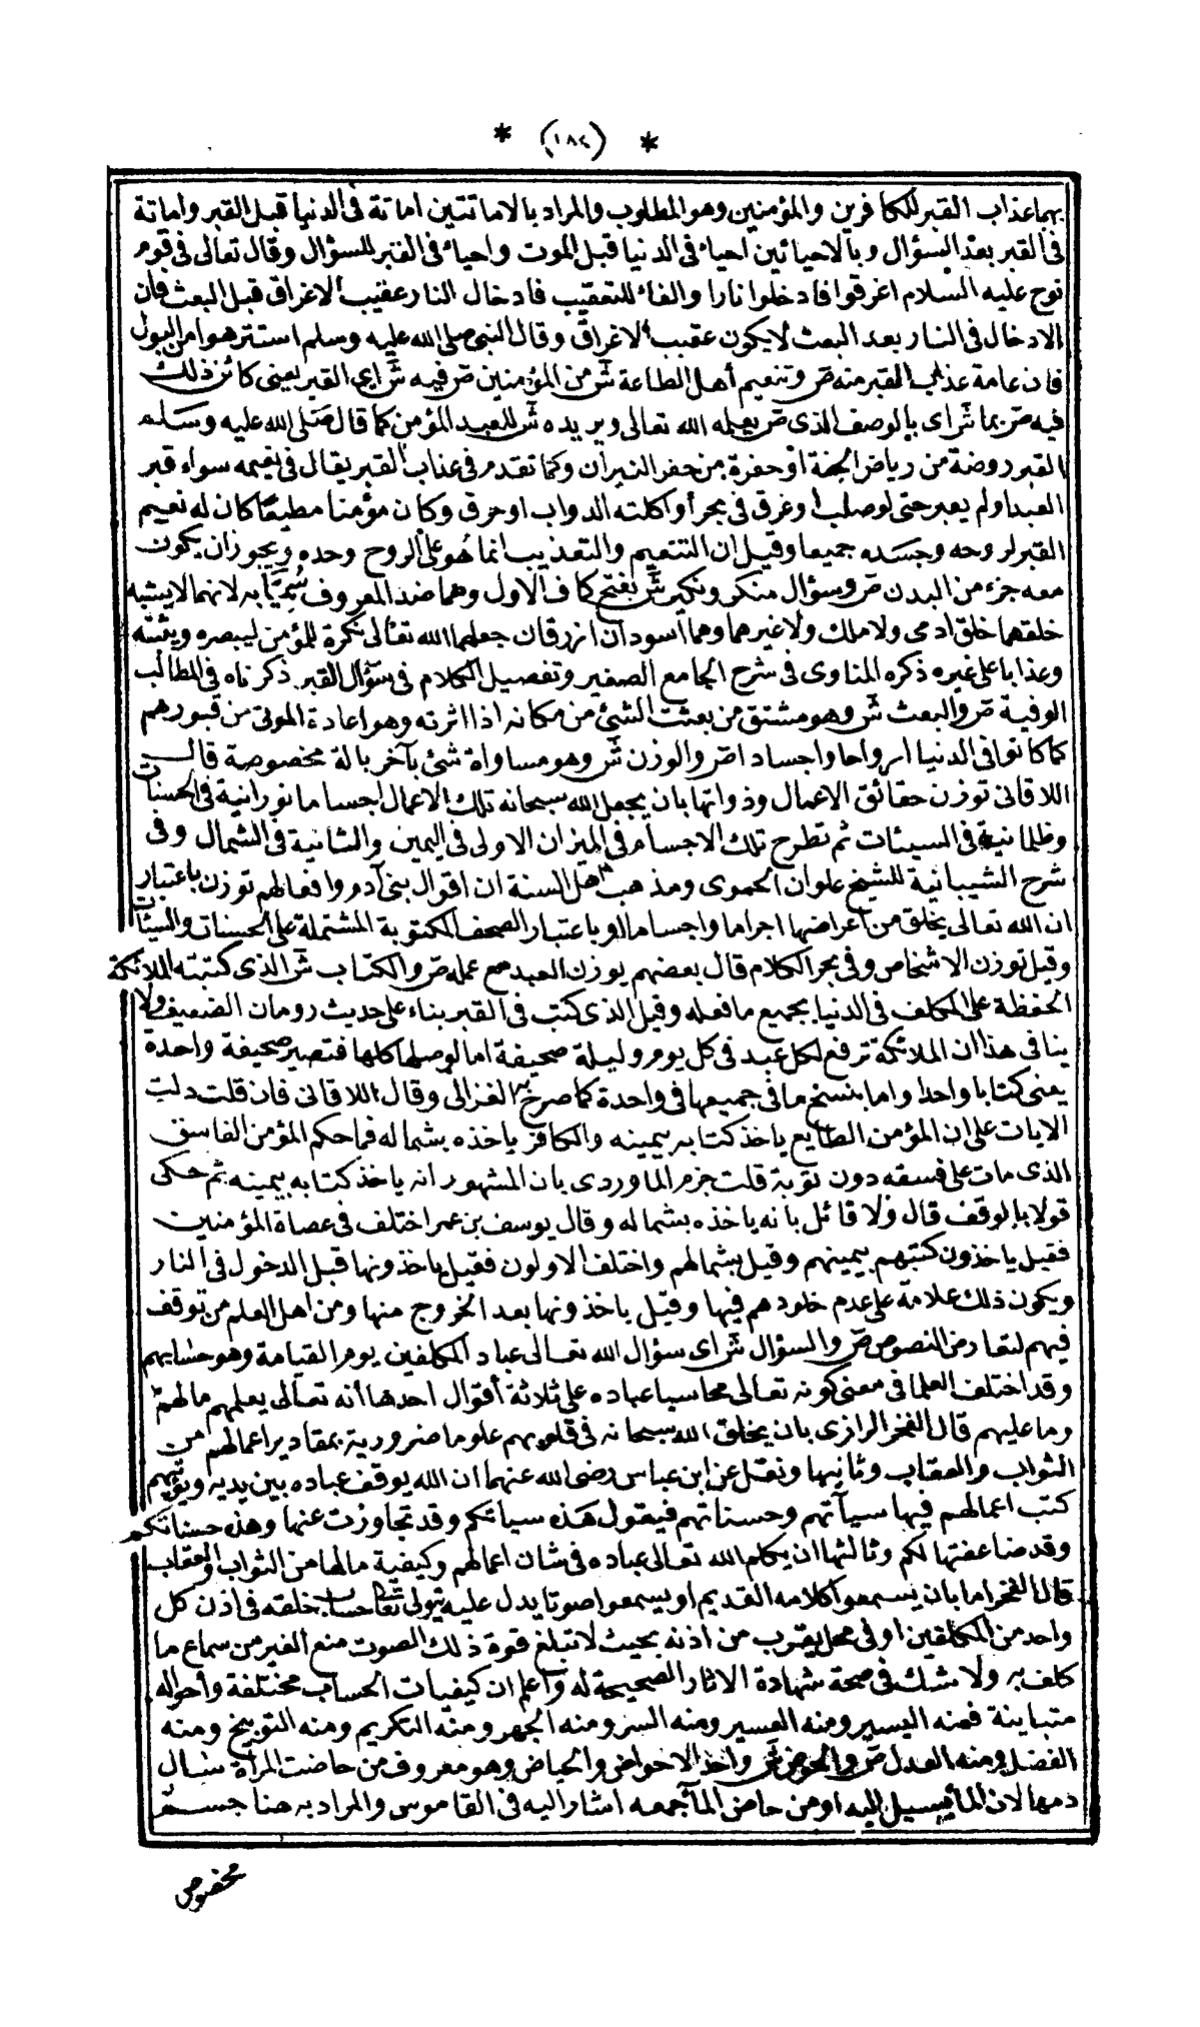 * (١٨٤) *
بهما عذاب القبر للكافرين والمؤمنين وهو المطلوب والمراد بالاماتتين اماتة فى الدنيا قبل القبر واماتة
فى القبر بعد السؤال وبالاحيائين احياء فى الدنيا قبل الموت واحياء فى القبر للسؤال وقال تعالى فى قوم
نوح عليه السلام اغرقوا فادخلوا نارا والفاء للتعقيب فادخال النار عقيب الاغراق قبل البعث فان
الادخال فى النار بعد البعث لا يكون عقيب الاغراق وقال النبى صلى الله عليه وسلم استنزهوا من البول
فان عامة عذاب القبر منه ص وتنعيم أهل الطاعة ش من المؤمنين ص فيه ش اى القبر يعنى كائن ذلك
فيه ص بما ش اى بالوصف الذى ص يعلمه الله تعالى ويريده ش للعبد المؤمن كما قال صلى الله عليه وسلم
القبر روضة من رياض الجنة او حفرة من حفر النيران وكما تقدم فى عذاب القبر يقال فى نعيمه سواء قبر
العبد او لم يقبر حتى لو صلب او غرق فى بحر أو اكلته الدواب او حرق وكان مؤمنا مطيعا كان له نعيم
القبر لروحه وجسده جميعا وقيل ان التنعيم والتعذيب انما هو على الروح وحده ويجوز ان يكون
معه جزء من البدن ص وسؤال منكر ونكير ش بفتح كاف الاول وهما ضد المعروف سميا به لانهما لا يشبه
خلقهما خلق ادمى ولا ملك ولا غيرهما وهما اسودان ازرقان جعلهما الله تعالى نكرة للمؤمن ليبصره ويثبته
وعذابا على غيره ذكره المناوى فى شرح الجامع الصغير وتفصيل الكلام فى سؤال القبر ذكرناه فى المطالب
الوفية ص والبعث ش وهو مشتق من بعثت الشئ من مكانه اذا اثرته وهو اعادة الموتى من قبورهم
كما كانوا فى الدنيا ارواحا واجسادا ص والوزن ش وهو مساواة شئ بآخر بالة مخصوصة قال
اللاقانى توزن حقائق الاعمال وذواتها بان يجعل الله سبحانه تلك الاعمال اجساما نورانية فى الحسنات
وظلمانية فى السيئات ثم تطرح تلك الاجسام فى الميزان الاولى فى اليمين والثانية فى الشمال وفى
شرح الشيبانية للشيخ علوان الحموى ومذهب اهل السنة ان اقوال بنى آدم وافعالهم توزن باعتبار
ان الله تعالى يخلق من اعراضها اجراما واجساما او باعتبار الصحف المكتوبة المشتملة على الحسنات والسيئات
وقيل توزن الاشخاص وفى بحر الكلام قال بعضهم يوزن العبد مع عمله ص والكتاب ش الذى كتبته الملائكة
الحفظة على المكلف فى الدنيا بجميع ما فعله وقيل الذى كتب فى القبر بناء على حديث رومان الضعيف ولا
ينافى هذا ان الملائكة ترفع لكل عبد فى كل يوم وليلة صحيفة اما لوصلها كلها فتصير صحيفة واحدة
يعنى كتابا واحدا واما بنسخ ما فى جميعها فى واحدة كما صرح به الغزالى وقال اللاقانى فان قلت دلت
الايات على ان المؤمن الطايع ياخذ كتابه بيمينه والكافر ياخذه بشماله فما حكم المؤمن الفاسق
الذى مات على فسقه دون توبة قلت جزم الماوردى بان المشهور انه ياخذ كتابه بيمينه ثم حكى
قولا بالوقف قال ولا قائل بانه ياخذه بشماله وقال يوسف بن عمر اختلف فى عصاة المؤمنين
فقيل ياخذون كتبهم بيمينهم وقيل بشمالهم واختلف الاولون فقيل ياخذونها قبل الدخول فى النار
ويكون ذلك علامة على عدم خلودهم فيها وقيل ياخذونها بعد الخروج منها ومن اهل العلم من توقف
فيهم لتعارض النصوص ص والسؤال ش اى سؤال الله تعالى عباده المكلفين يوم القيامة وهو حسابهم
وقد اختلف العلما فى معنى كونه تعالى محاسبا عباده على ثلاثة أقوال احدها أنه تعالى يعلمهم ما لهم
وما عليهم قال الفخر الرازى بان يخلق الله سبحانه فى قلوبهم علوما ضرورية بمقادير اعمالهم من
الثواب والعقاب وثانيها ونقل عن ابن عباس رضى الله عنهما ان الله يوقف عباده بين يديه ويؤتيهم
كتب اعمالهم فيها سيآتهم وحسناتهم فيقول هذه سيآتكم وقد تجاوزت عنها وهذه حسناتكم
وقد ضاعفتها لكم وثالثها ان يكلم الله تعالى عباده فى شان اعمالهم وكيفية مالها من الثواب والعقاب
قال الفخر اما بان يسمعوا كلامه القديم او يسمعوا صوتا يدل عليه يتولى تعالى حساب خلقه فى اذن كل
واحد من المكلفين او فى محل يقرب من اذنه بحيث لا تبلغ قوة ذلك الصوت منع الغير من سماع ما
كلف به ولا شك فى صحة شهادة الاثار الصحيحة له واعلم ان كيفيات الحساب مختلفة واحواله
متباينة فمنه اليسير ومنه العسير ومنه السر ومنه الجهر ومنه التكريم ومنه التوبيخ ومنه
الفضل ومنه العدل ص والحوض ش واحد الاحواض والحياض وهو معروف من حاضت المرأة سال
دمها لان الماء يسيل اليه او من حاض الماء جمعه اشار اليه فى القاموس والمراد به هنا جسم
مخصوص